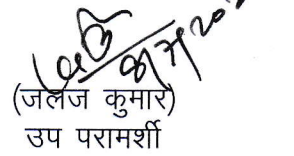 (जलज कुमार)
उप परामर्शी